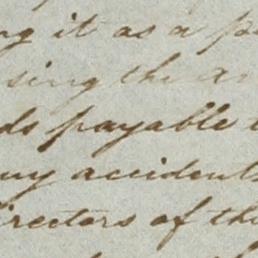 ng it as a p
sing the a
ds payable t
ny accidents
irectors of the